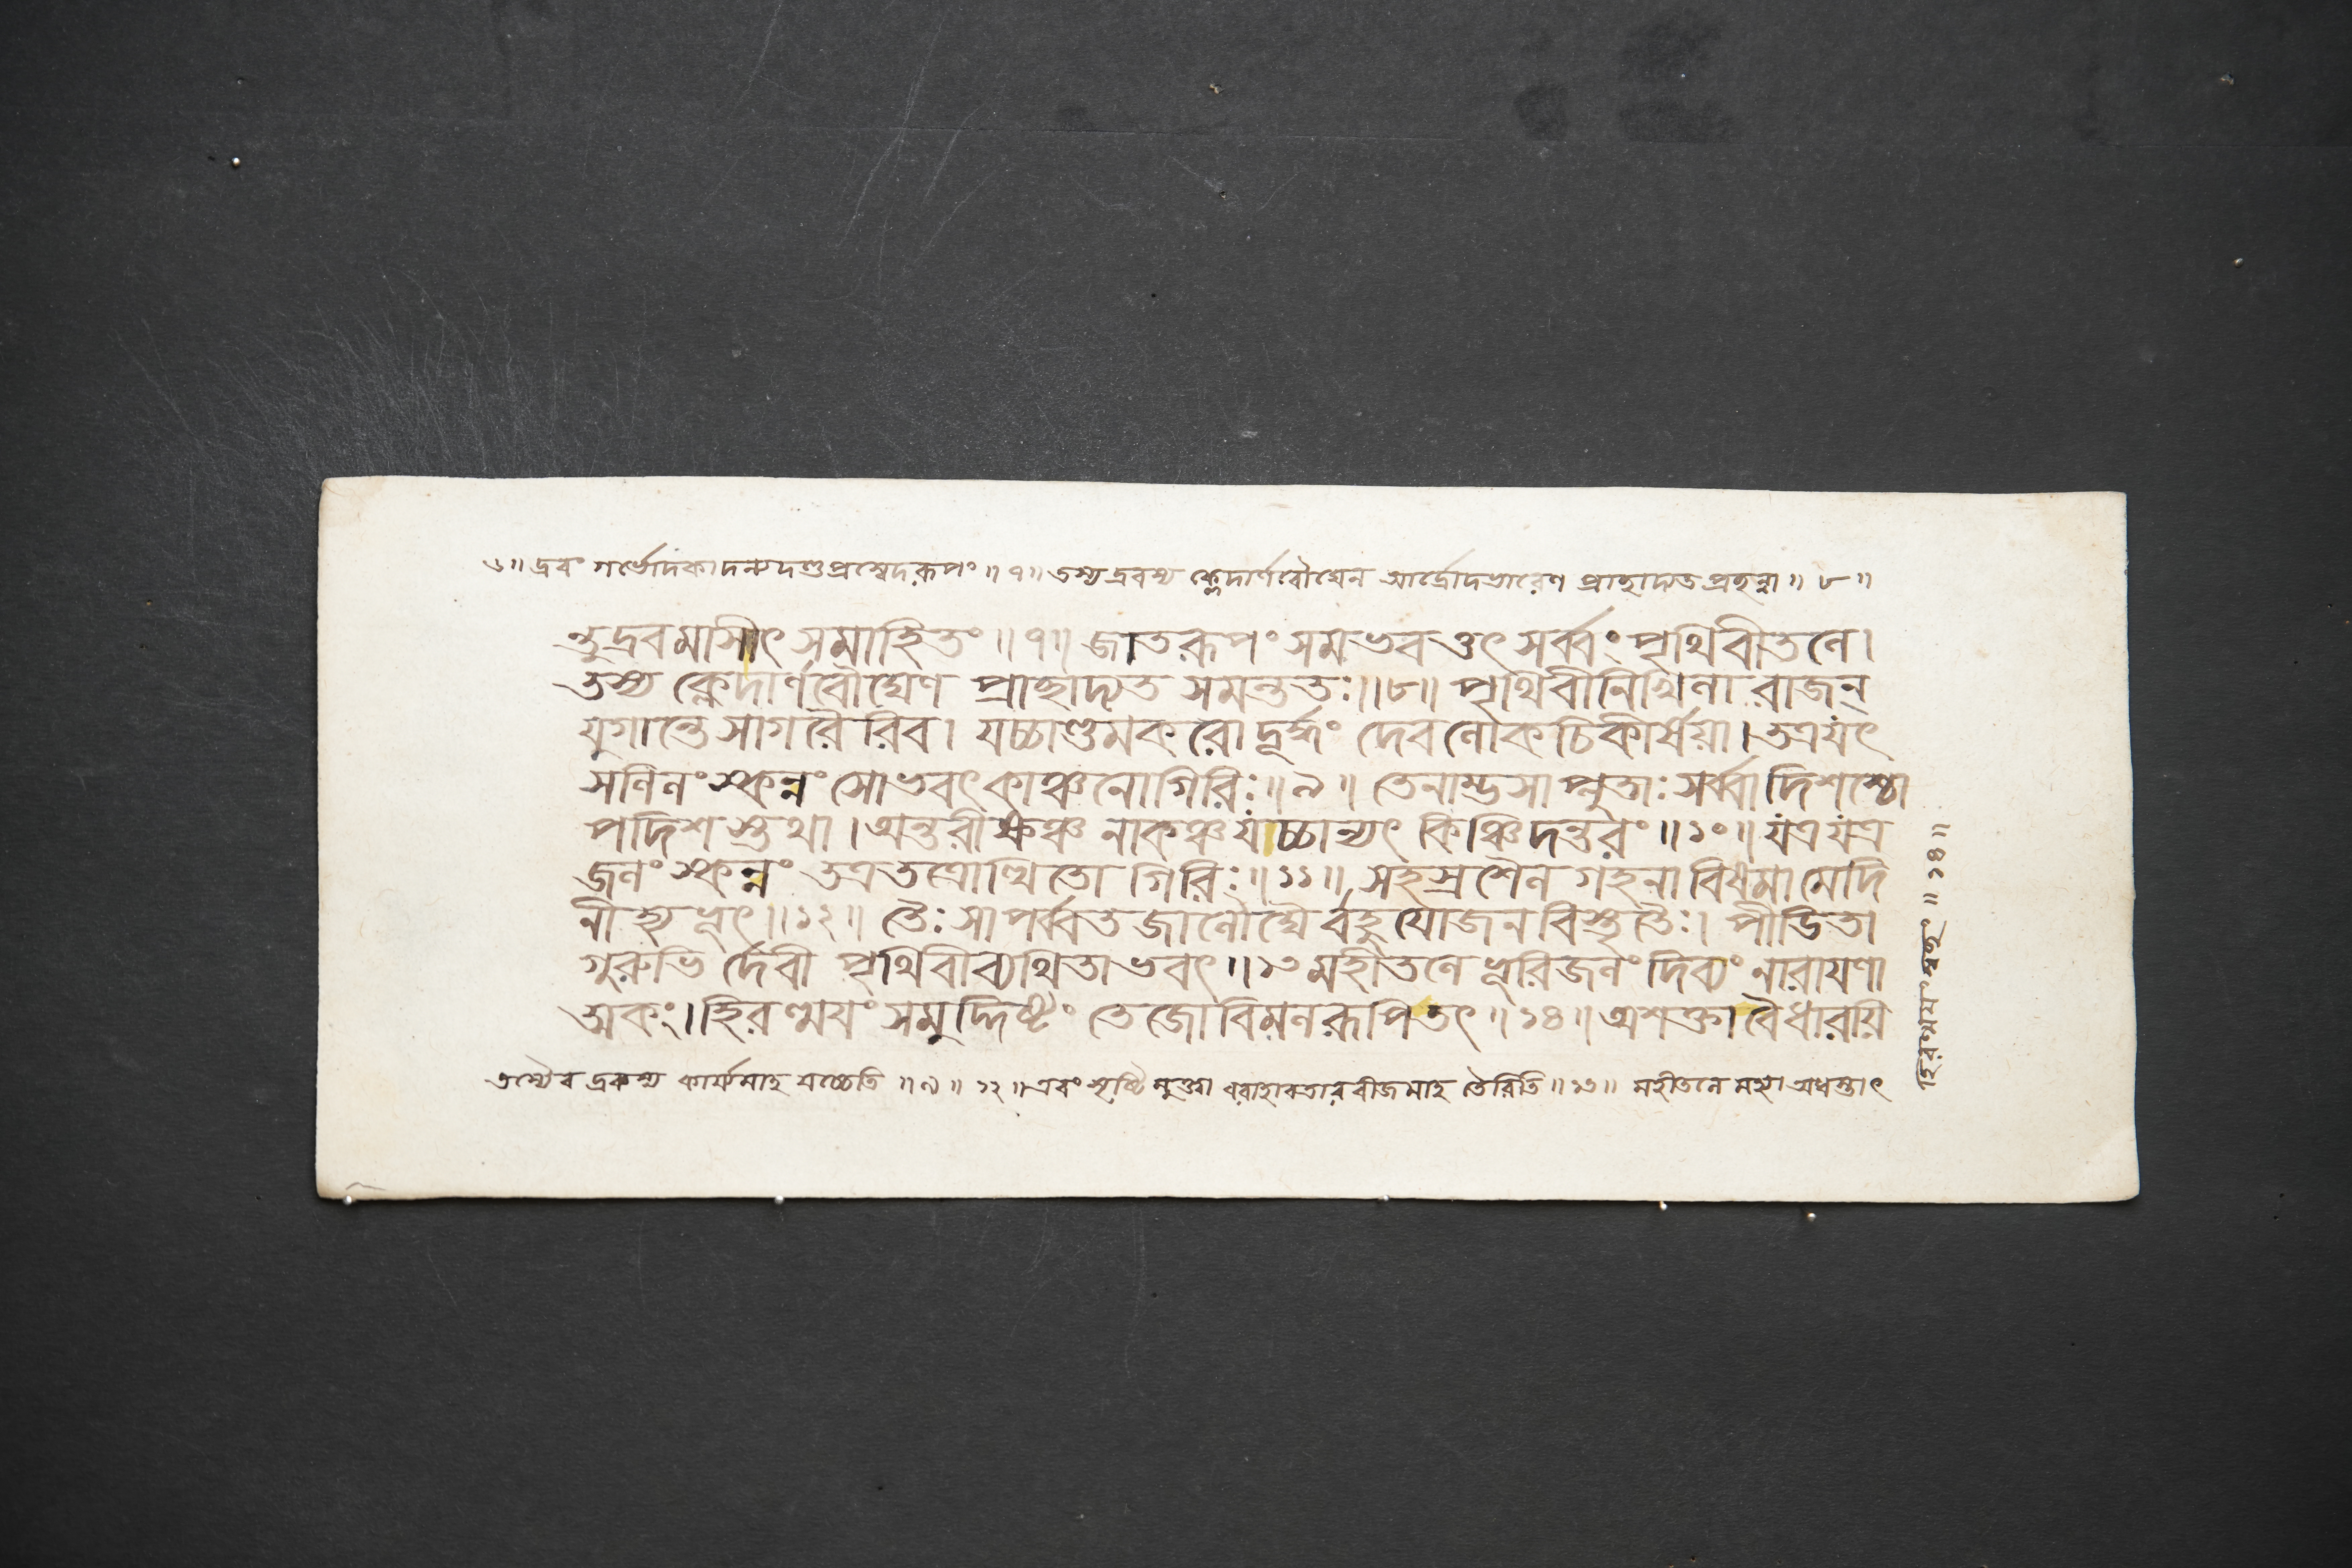 ৬॥ দ্রবং গর্ভোদকাদন্যদণ্ডপ্রস্বেদরূপং ॥ ৭॥ তস্য দ্রবস্য ক্লেদার্ণবৌঘেন আর্দ্রোদভারেণ প্রাহাদ্যত প্রহন্না ॥ ৮ ॥
ন্তুদ্রবমাসীৎ সমাহিতং ॥ ৭॥ জাতরূপং সমভবত্তৎ সর্ব্বং পৃথিবীতলে।
তস্য ক্লেদার্ণবৌঘেণ প্রাহাদ্যত সমন্ততঃ॥৮॥ পৃথিবীনিখিলা রাজন্
যুগান্তে সাগরৈরিব। যচ্চাণ্ডমকরোদ্দূর্দ্ধং দেবলোকচিকীর্ষয়া। তত্রযৎ
সলিলং স্কন্নং সোভবৎ কাঞ্চনোগিরিঃ॥৯॥ তেনাম্ভসাপ্লুতাঃ সর্ব্বাদিশশ্চো
পদিশস্তথা। অন্তরীক্ষঞ্চ নাকঞ্চ যচ্চান্যৎ কিঞ্চিদন্তরং ॥১০॥ যত্রযত্র
জলং স্কন্নং তত্রতত্রোত্থিতো গিরিঃ॥১১॥ সহস্রশৈল গহনা বিষমামেদি
নীত্যভূৎ॥১২॥ তৈঃ সাপর্ব্বতজালৌঘৈর্বহুযোজনবিস্তৃতৈঃ। পীডিতা
গুরুভির্দেবী পৃথিবীব্যথিতাভবৎ॥১৩ মহীতলে ভূরিজলং দিব্যং নারায়ণা
ত্মকং। হিরণ্ময়ং সমুদ্দিষ্টং তেজোবিমলরূপিতৎ॥১৪॥ অশক্তাবৈধারয়ি
তস্যৈব দ্রবস্য কার্য্যমাহ যচ্চেতি ॥৯॥ ১২॥ এবং সৃষ্টিমুক্ত্বা বরাহাবতারবীজমাহ তৈরিতি॥১৩॥ মহীতলে মহ্যা অধস্তাৎ